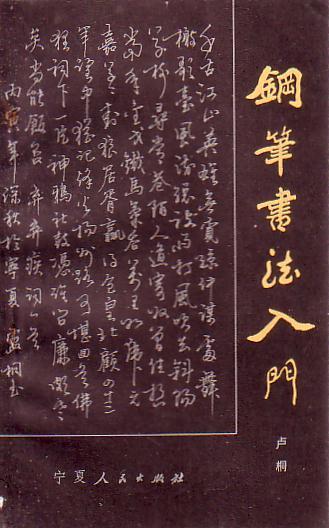 鋼筆書法入門
卢桐
千古江山英雄无觅孙仲谋处舞
榭歌台风流总被雨打风吹去斜阳
草树寻常巷陌人道寄奴曾住想
当年金戈铁马气吞万里如虎元
嘉草草封狼居胥赢得仓皇北顾四十三
年望中犹记烽火扬州路可堪回首佛
狸祠下一片神鸦社鼓凭谁问廉颇老
矣尚能饭否 辛弃疾词一首
丙寅年深秋於宁夏 卢桐书
宁夏人民出版社